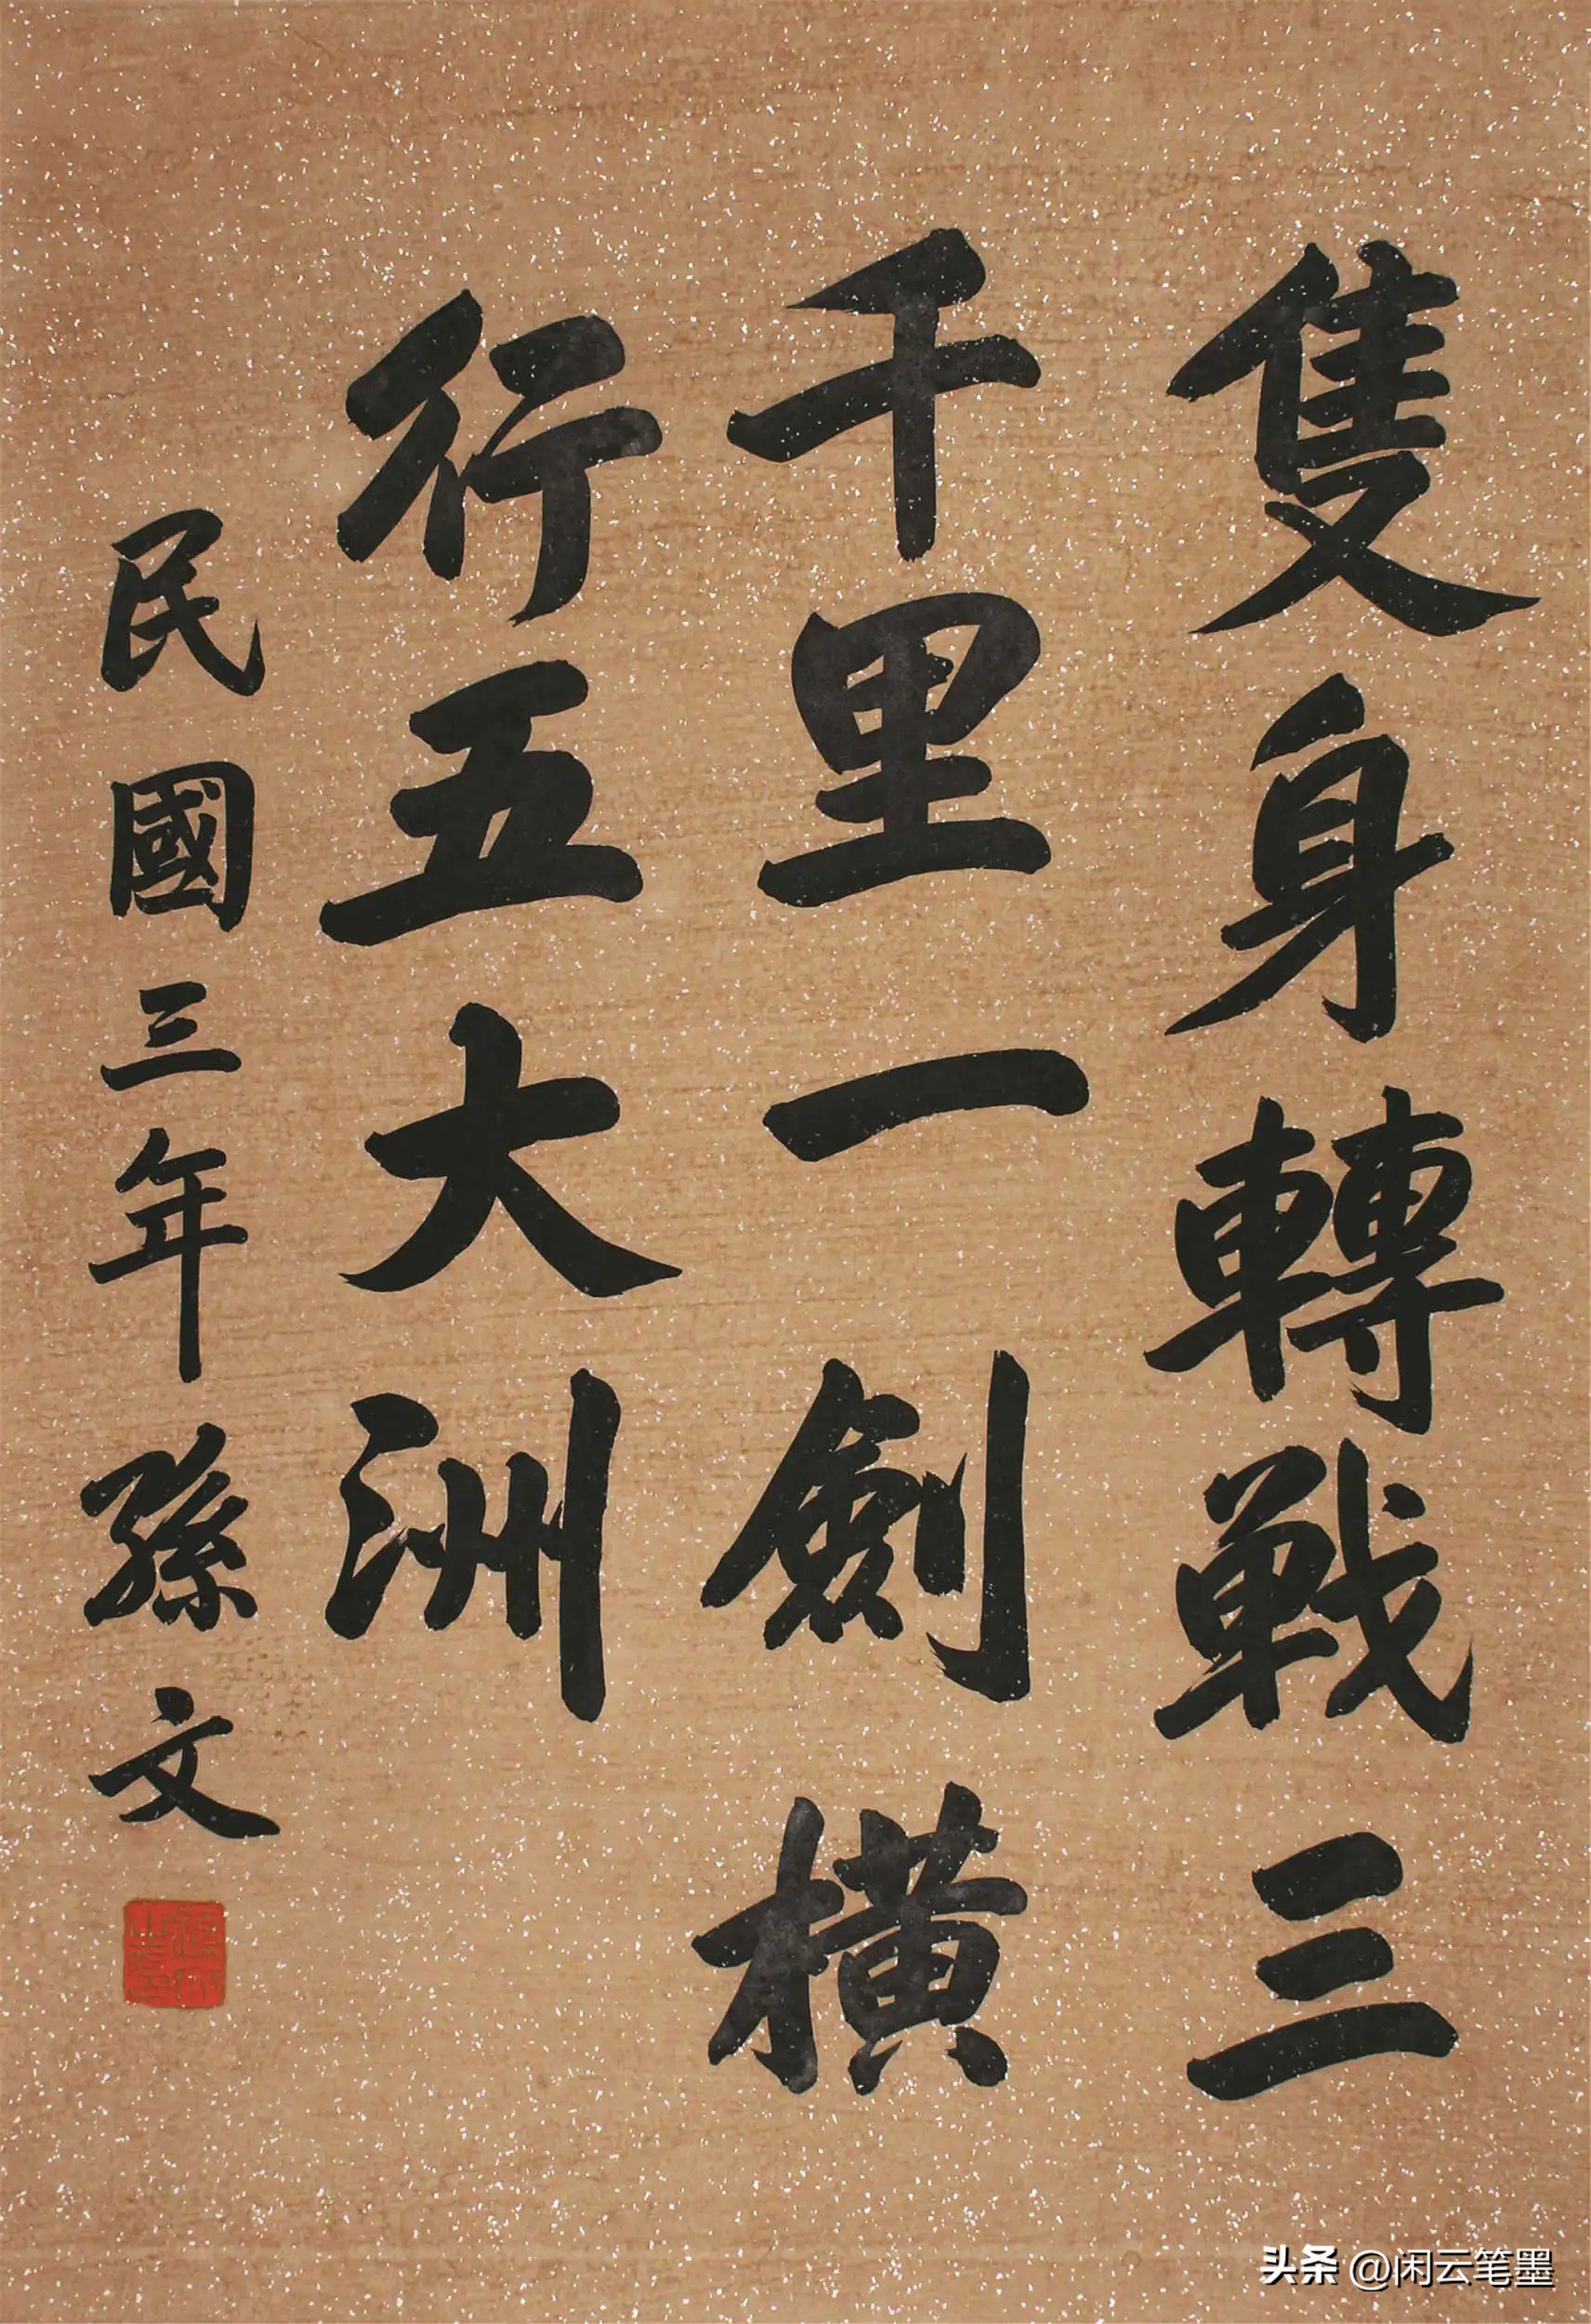 隻身轉戰三
千里一劍橫
行五大洲
民國三年孫文
头条 @闲云笔墨